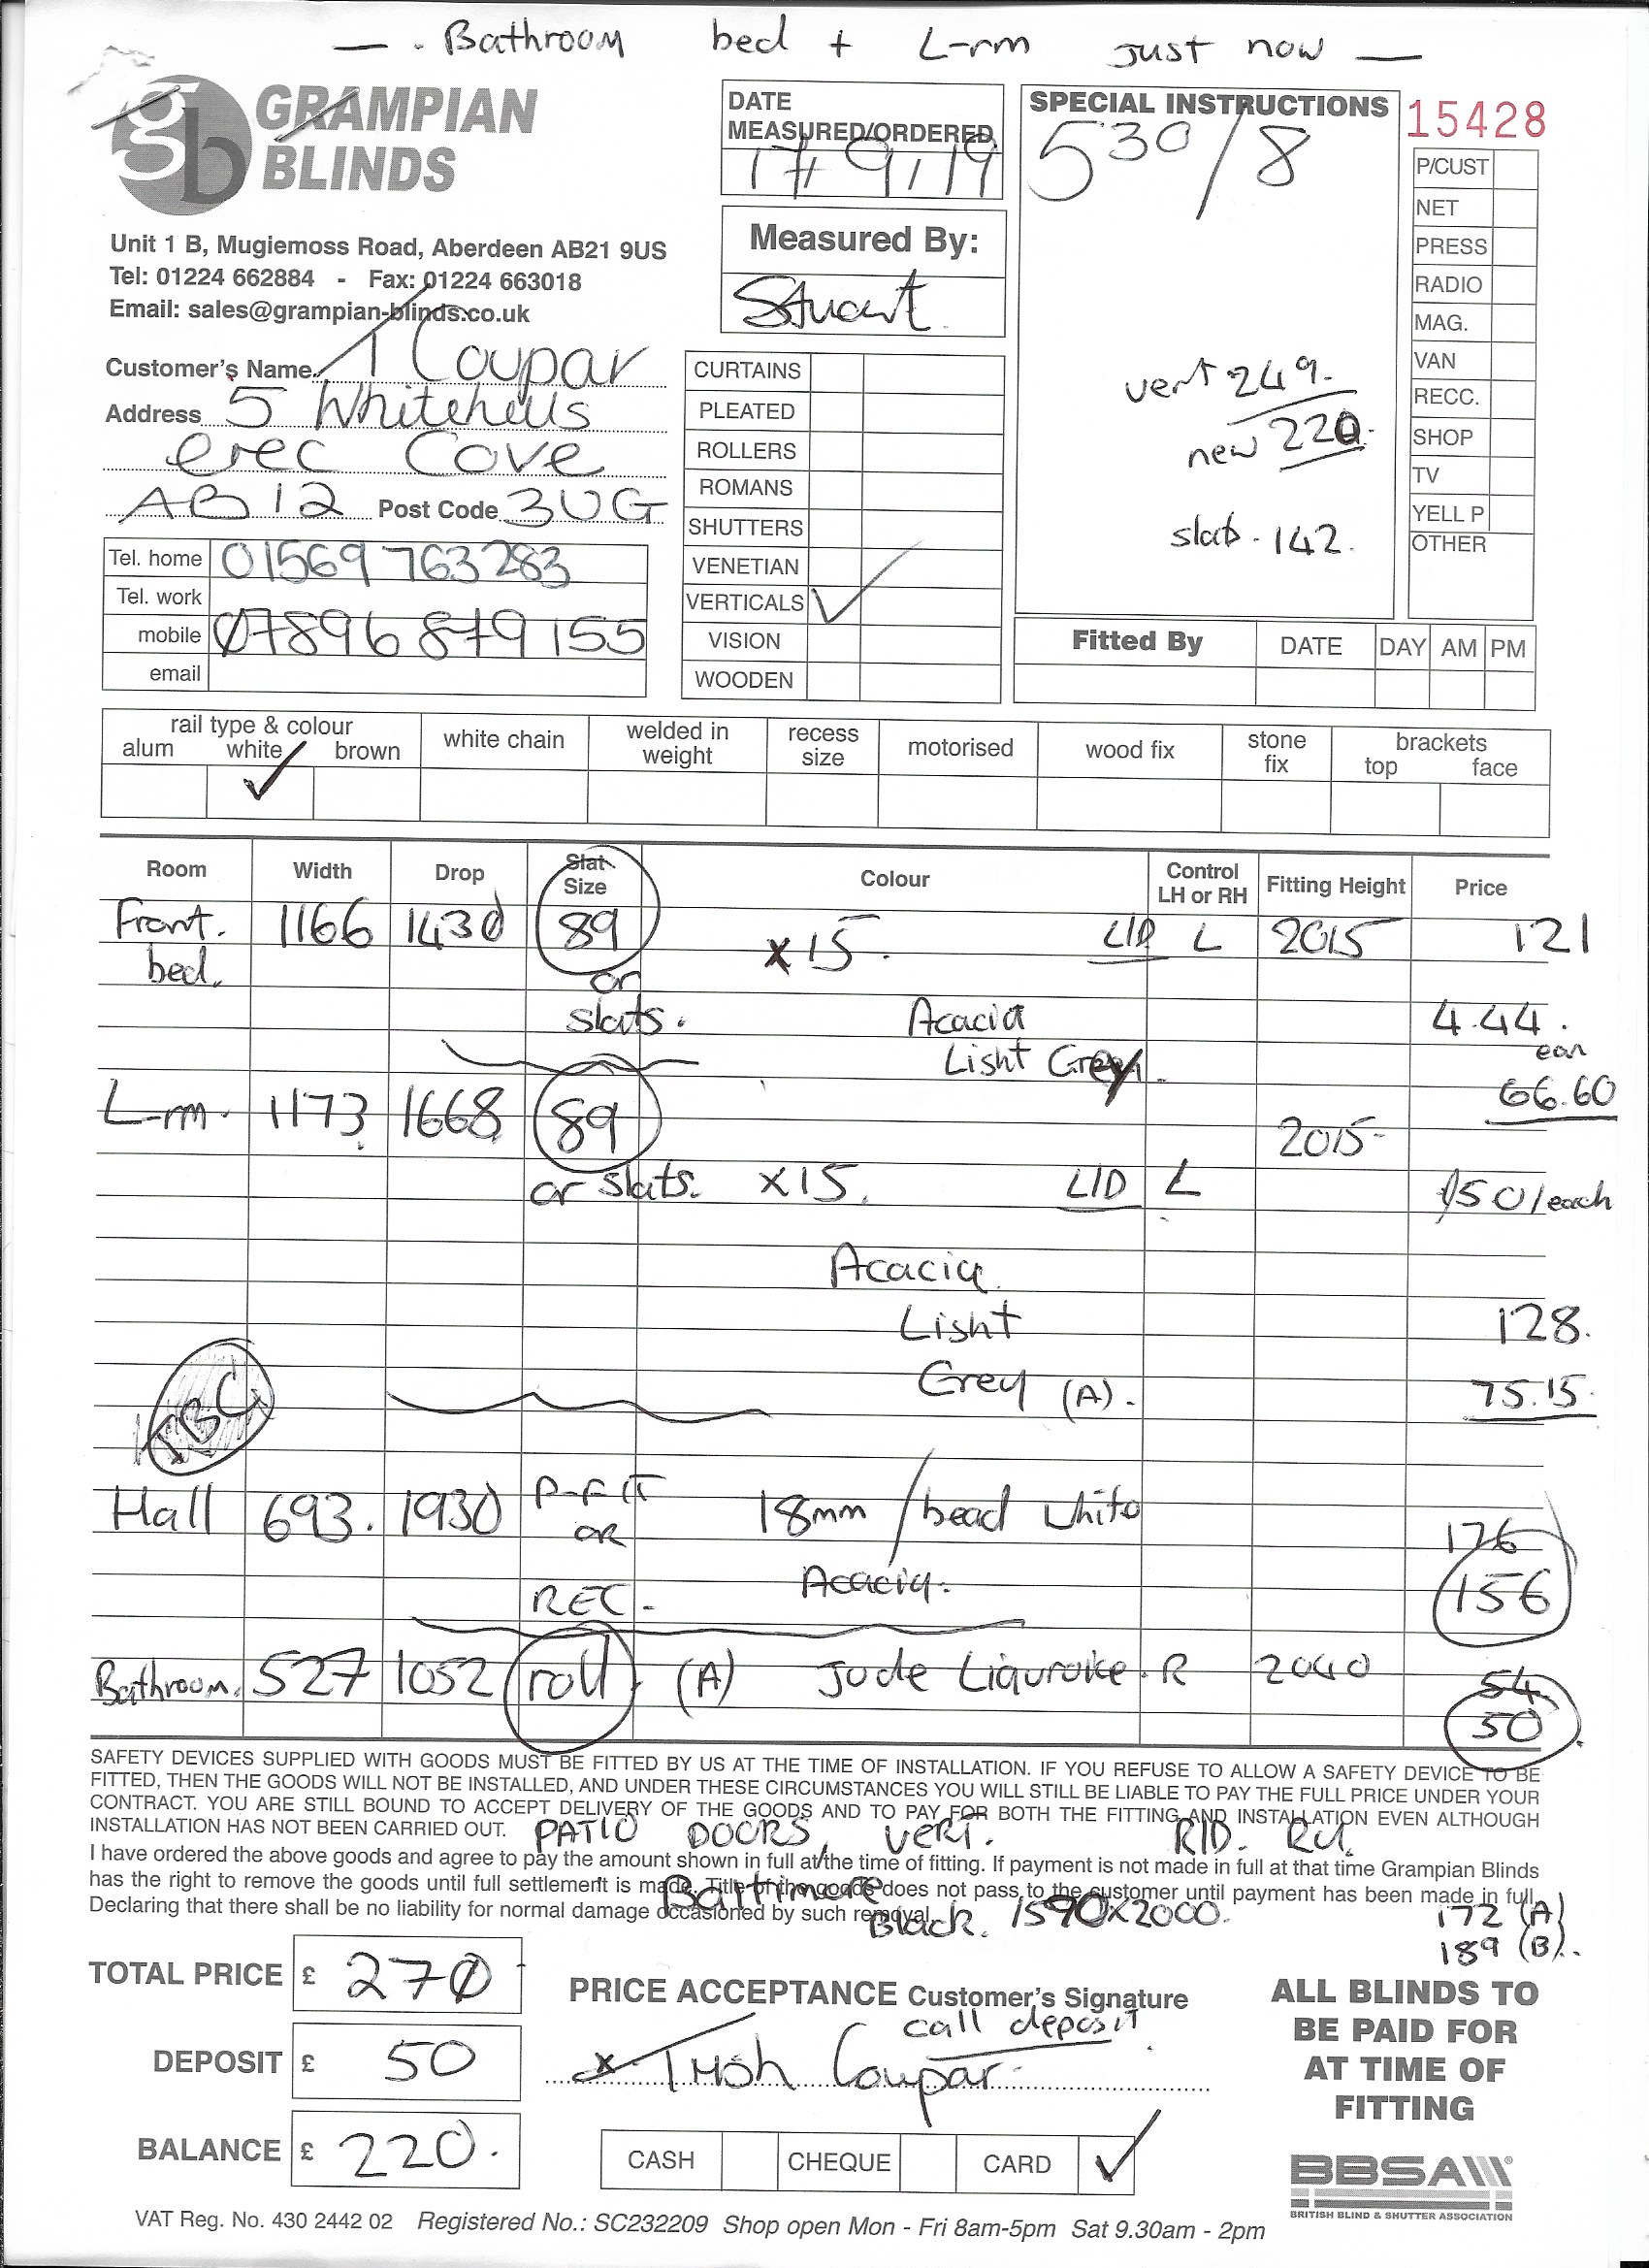 — . Bathroom bed + L-rm just now —
gb GRAMPIAN BLINDS
Unit 1 B, Mugiemoss Road, Aberdeen AB21 9US
Tel: 01224 662884 - Fax: 01224 663018
Email: sales@grampian-blinds.co.uk
DATE MEASURED/ORDERED
17/9/19
Measured By:
Stuart
SPECIAL INSTRUCTIONS
530/8
vert 249.
new 220.
slats. 142.
15428
P/CUST
NET
PRESS
RADIO
MAG.
VAN
RECC.
SHOP
TV
YELL P
OTHER
Customer's Name T Coupar
Address 5 Whitehills
Cove
AB12 Post Code 3UG
Tel. home 01569 763283
Tel. work
mobile 07896 879155
email
CURTAINS
PLEATED
ROLLERS
ROMANS
SHUTTERS
VENETIAN
VERTICALS ✓
VISION
WOODEN
Fitted By DATE DAY AM PM
rail type & colour
alum white brown white chain welded in weight recess size motorised wood fix stone fix brackets top face
✓
Room Width Drop Slat Size Colour Control LH or RH Fitting Height Price
Front. 1166 1430 89 x15. L/D L 2015 121
bed. or
slats. Acacia 4.44.
Lisht Grey. each
66.60
L-rm. 1173 1668 89 2015
or slats. x15. L/D L 50/each
Acacia
Lisht 128.
Grey (A). 75.15
TBC
Hall 693. 1930 P-FIT 18mm / bead white 176
OR Acacia. 156
REC.
Bathroom. 527 1052 roll (A) Jude R 2040 54
50
SAFETY DEVICES SUPPLIED WITH GOODS MUST BE FITTED BY US AT THE TIME OF INSTALLATION. IF YOU REFUSE TO ALLOW A SAFETY DEVICE TO BE
FITTED, THEN THE GOODS WILL NOT BE INSTALLED, AND UNDER THESE CIRCUMSTANCES YOU WILL STILL BE LIABLE TO PAY THE FULL PRICE UNDER YOUR
CONTRACT. YOU ARE STILL BOUND TO ACCEPT DELIVERY OF THE GOODS AND TO PAY FOR BOTH THE FITTING AND INSTALLATION EVEN ALTHOUGH
INSTALLATION HAS NOT BEEN CARRIED OUT.
PATIO DOORS, VERT. R/D.
I have ordered the above goods and agree to pay the amount shown in full at the time of fitting. If payment is not made in full at that time Grampian Blinds
has the right to remove the goods until full settlement is made. Title of the goods does not pass to the customer until payment has been made in full.
Declaring that there shall be no liability for normal damage occasioned by such removal.
Baltimore
Black. 1590x2000. 172 (A)
189 (B).
TOTAL PRICE £ 270
DEPOSIT £ 50
BALANCE £ 220.
PRICE ACCEPTANCE Customer's Signature
call deposit
x Trish Coupar
CASH CHEQUE CARD ✓
ALL BLINDS TO
BE PAID FOR
AT TIME OF
FITTING
BBSA
BRITISH BLIND & SHUTTER ASSOCIATION
VAT Reg. No. 430 2442 02 Registered No.: SC232209 Shop open Mon - Fri 8am-5pm Sat 9.30am - 2pm